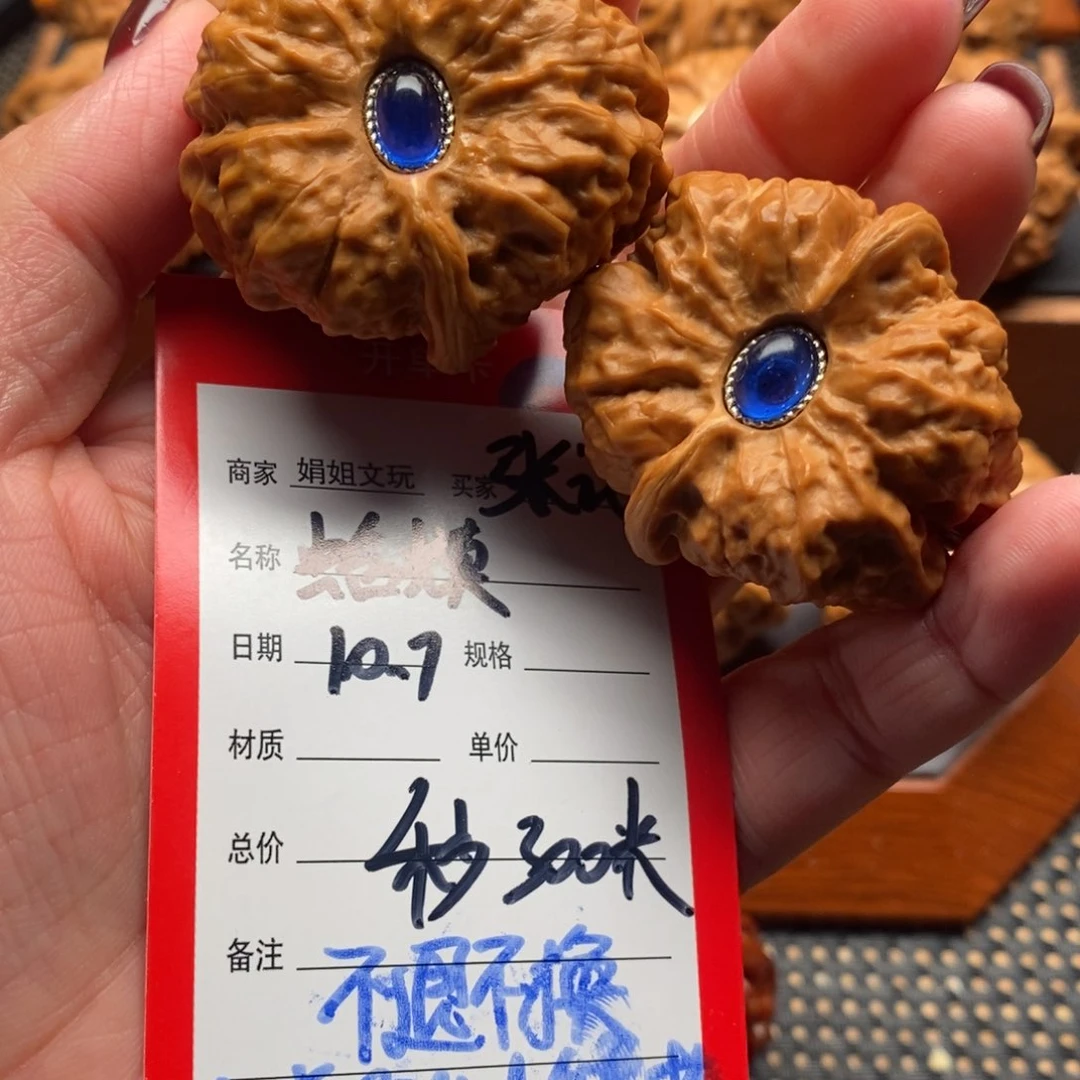 商家 娟姐文玩 买家 张
名称 蛤蟆
日期 10.7 规格
材质 单价
总价 秒300米
备注 不退不换